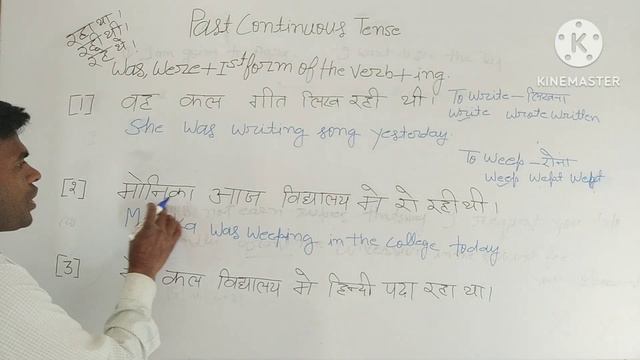 Past Continuous Tense
रहा था।
रही थी।
रहे थे।
Was, Were + Ist form of the verb + ing.
[1] वह कल गीत लिख रही थी।
To Write - लिखना
Write Wrote Written
She was writing song yesterday.
To Weep - रोना
Weep Wept Wept
[2] मोनिका आज विद्यालय मे रो रही थी।
was weeping in the college today
[3] कल विद्यालय मे हिन्दी पढा रहा था।
KINEMASTER